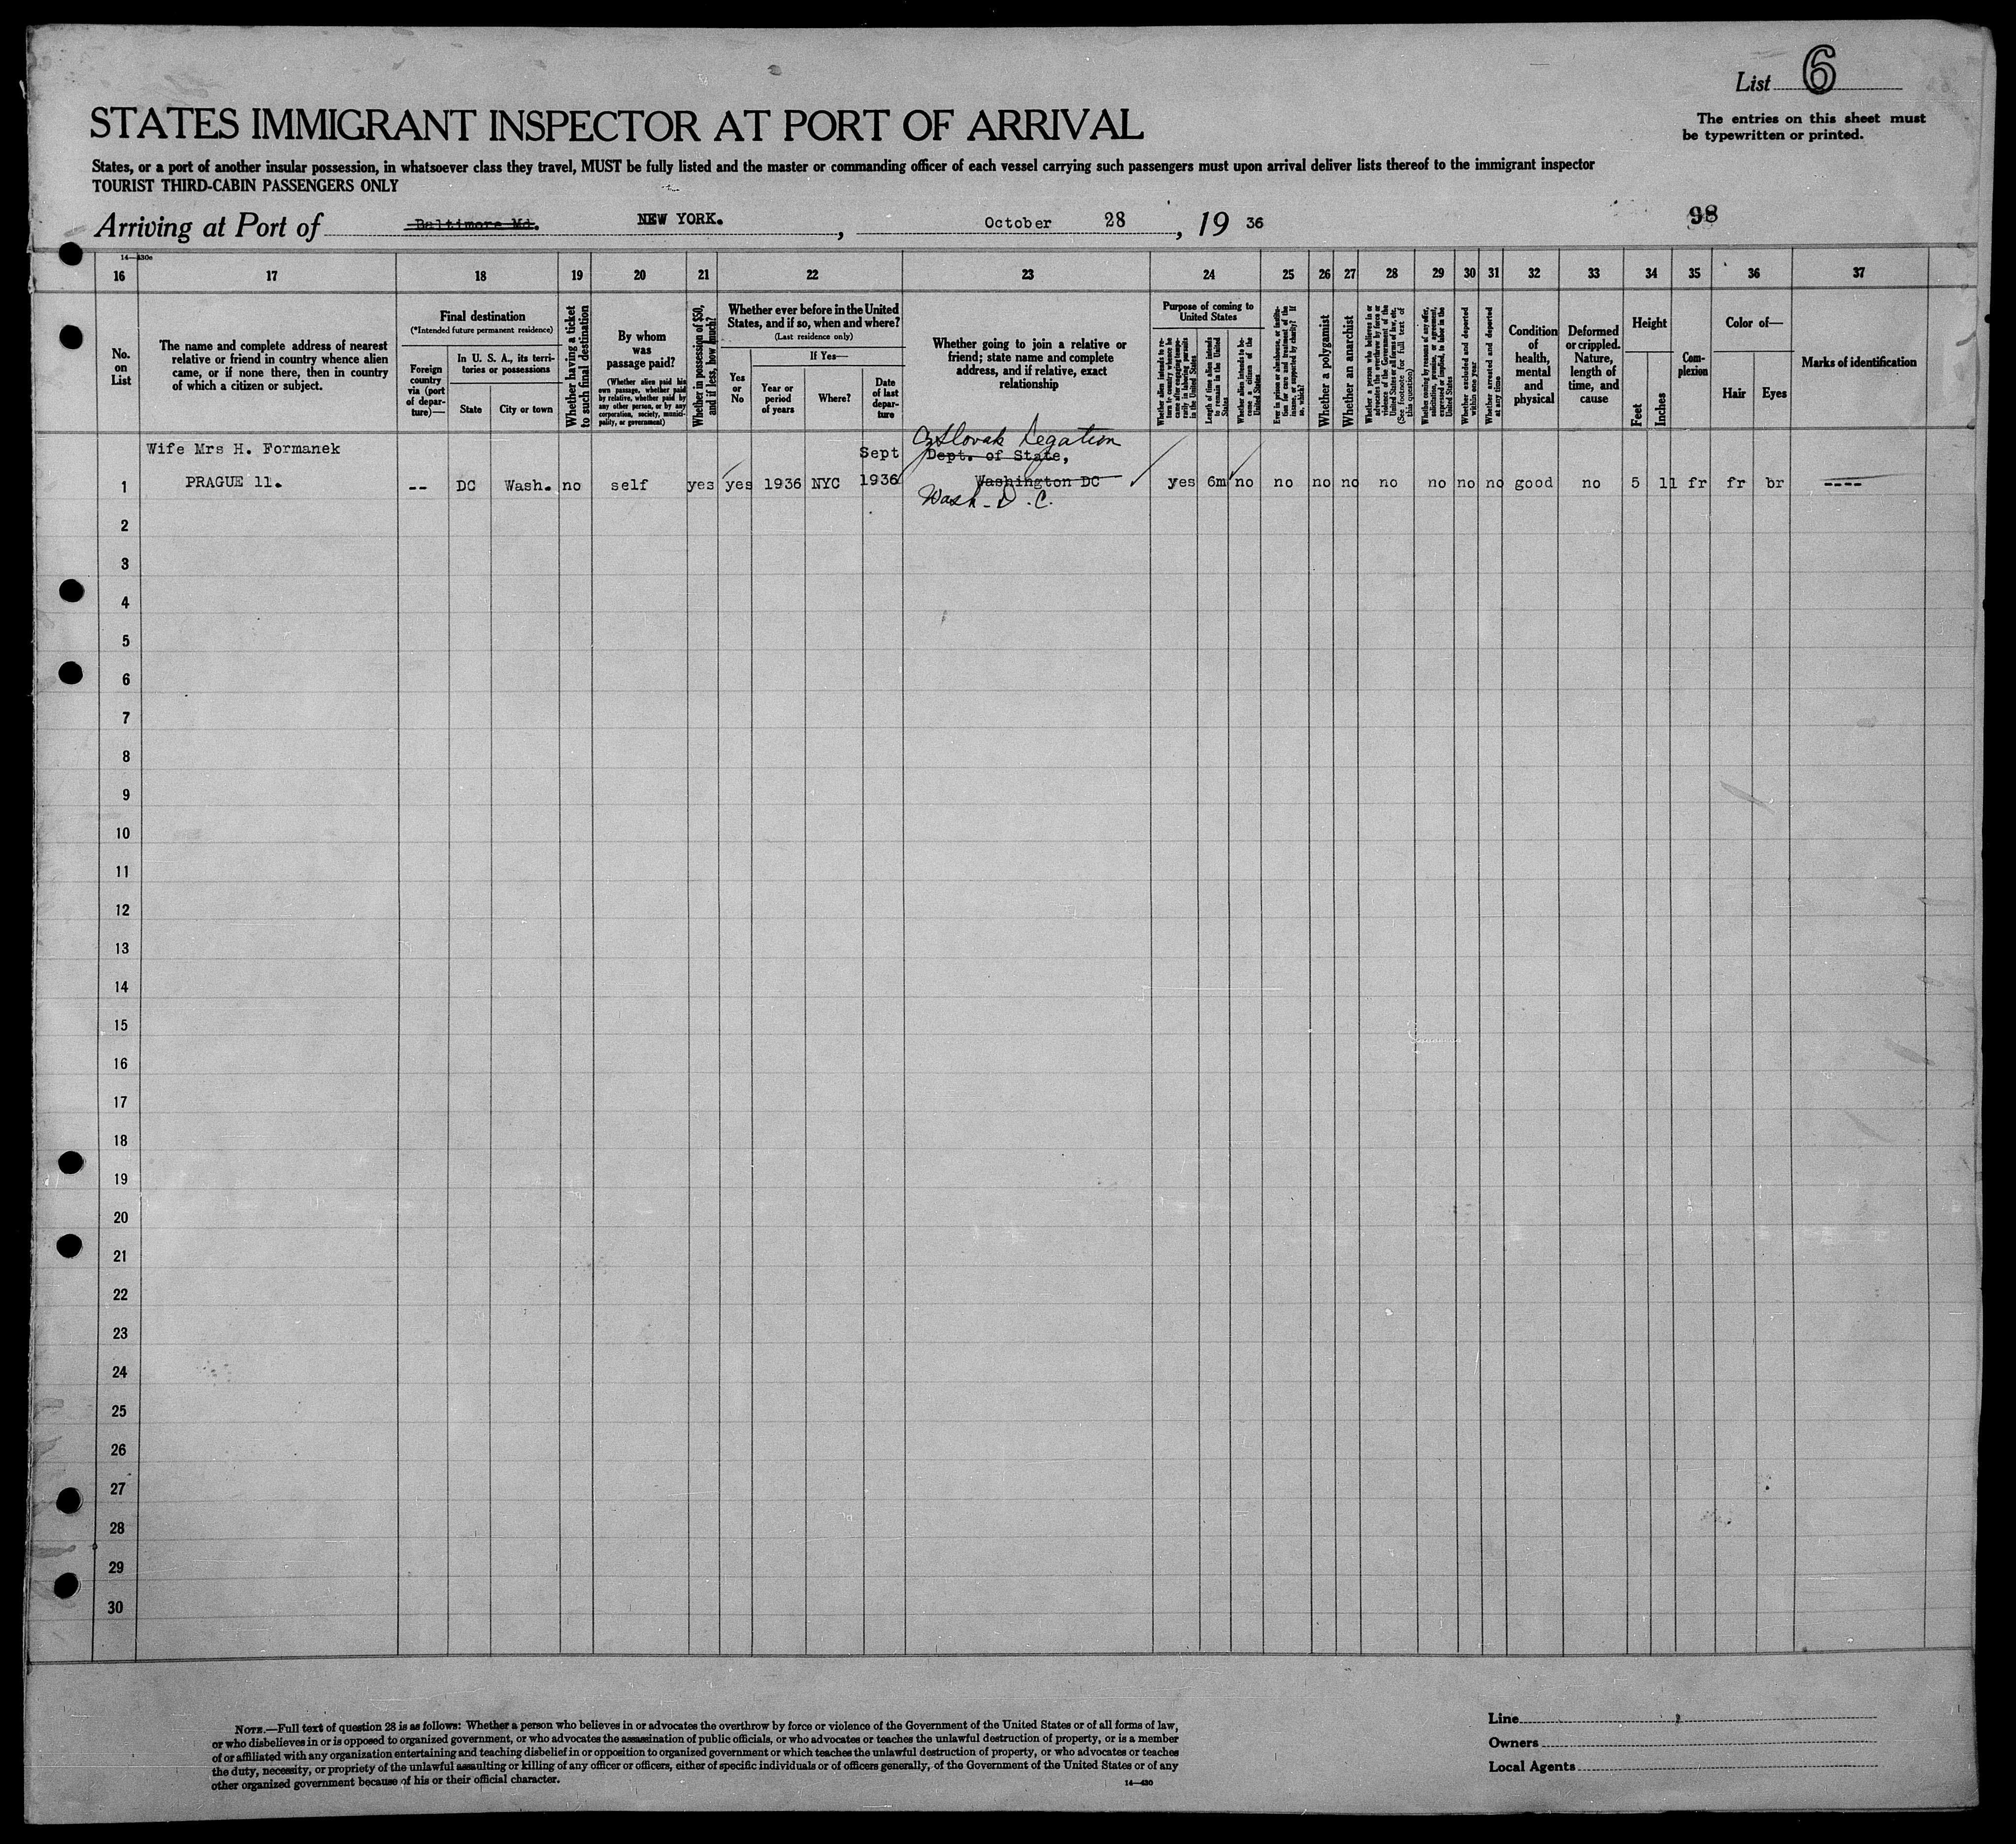 List 6
STATES IMMIGRANT INSPECTOR AT PORT OF ARRIVAL
The entries on this sheet must
be typewritten or printed.
States, or a port of another insular possession, in whatsoever class they travel, MUST be fully listed and the master or commanding officer of each vessel carrying such passengers must upon arrival deliver lists thereof to the immigrant inspector
TOURIST THIRD-CABIN PASSENGERS ONLY
Arriving at Port of Baltimore Md. NEW YORK. , October 28 , 19 36
98
14—430e
16 17 18 19 20 21 22 23 24 25 26 27 28 29 30 31 32 33 34 35 36 37
No.
on
List
The name and complete address of nearest
relative or friend in country whence alien
came, or if none there, then in country
of which a citizen or subject.
Final destination
(*Intended future permanent residence)
Foreign
country
via (port
of depar-
ture)—
In U. S. A., its terri-
tories or possessions
State
City or town
Whether having a ticket
to such final destination
By whom
was
passage paid?
(Whether alien paid his
own passage, whether paid
by relative, whether paid by
any other person, or by any
corporation, society, munici-
pality, or government)
Whether in possession of $50,
and if less, how much?
Whether ever before in the United
States, and if so, when and where?
(Last residence only)
Yes
or
No
If Yes—
Year or
period
of years
Where?
Date
of last
depar-
ture
Whether going to join a relative or
friend; state name and complete
address, and if relative, exact
relationship
Purpose of coming to
United States
Whether alien intends to re-
turn to country whence he
came after engaging tempo-
rarily in laboring pursuits
in the United States
Length of time alien intends
to remain in the United
States
Whether alien intends to be-
come a citizen of the
United States
Ever in prison or almshouse, or institu-
tion for care and treatment of the
insane, or supported by charity? If
so, which?
Whether a polygamist
Whether an anarchist
Whether a person who believes in or
advocates the overthrow by force or
violence of the Government of the
United States or all forms of law, etc.
(See footnote for full text of
this question)
Whether coming by reasons of any offer,
solicitation, promise, or agreement,
expressed or implied, to labor in the
United States
Whether excluded and deported
within one year
Whether arrested and deported
at any time
Condition
of
health,
mental
and
physical
Deformed
or crippled.
Nature,
length of
time, and
cause
Height
Feet
Inches
Com-
plexion
Color of—
Hair
Eyes
Marks of identification
Wife Mrs H. Formanek Sept Czslovak Legation
Dept. of State,
1 PRAGUE 11. -- DC Wash. no self yes yes 1936 NYC 1936 Washington DC yes 6m no no no no no no no no good no 5 11 fr fr br ----
Wash. D.C.
2
3
4
5
6
7
8
9
10
11
12
13
14
15
16
17
18
19
20
21
22
23
24
25
26
27
28
29
30
NOTE.—Full text of question 28 is as follows: Whether a person who believes in or advocates the overthrow by force or violence of the Government of the United States or of all forms of law,
or who disbelieves in or is opposed to organized government, or who advocates the assassination of public officials, or who advocates or teaches the unlawful destruction of property, or is a member
of or affiliated with any organization entertaining and teaching disbelief in or opposition to organized government or which teaches the unlawful destruction of property, or who advocates or teaches
the duty, necessity, or propriety of the unlawful assaulting or killing of any officer or officers, either of specific individuals or of officers generally, of the Government of the United States or of any
other organized government because of his or their official character.
14—430
Line
Owners
Local Agents